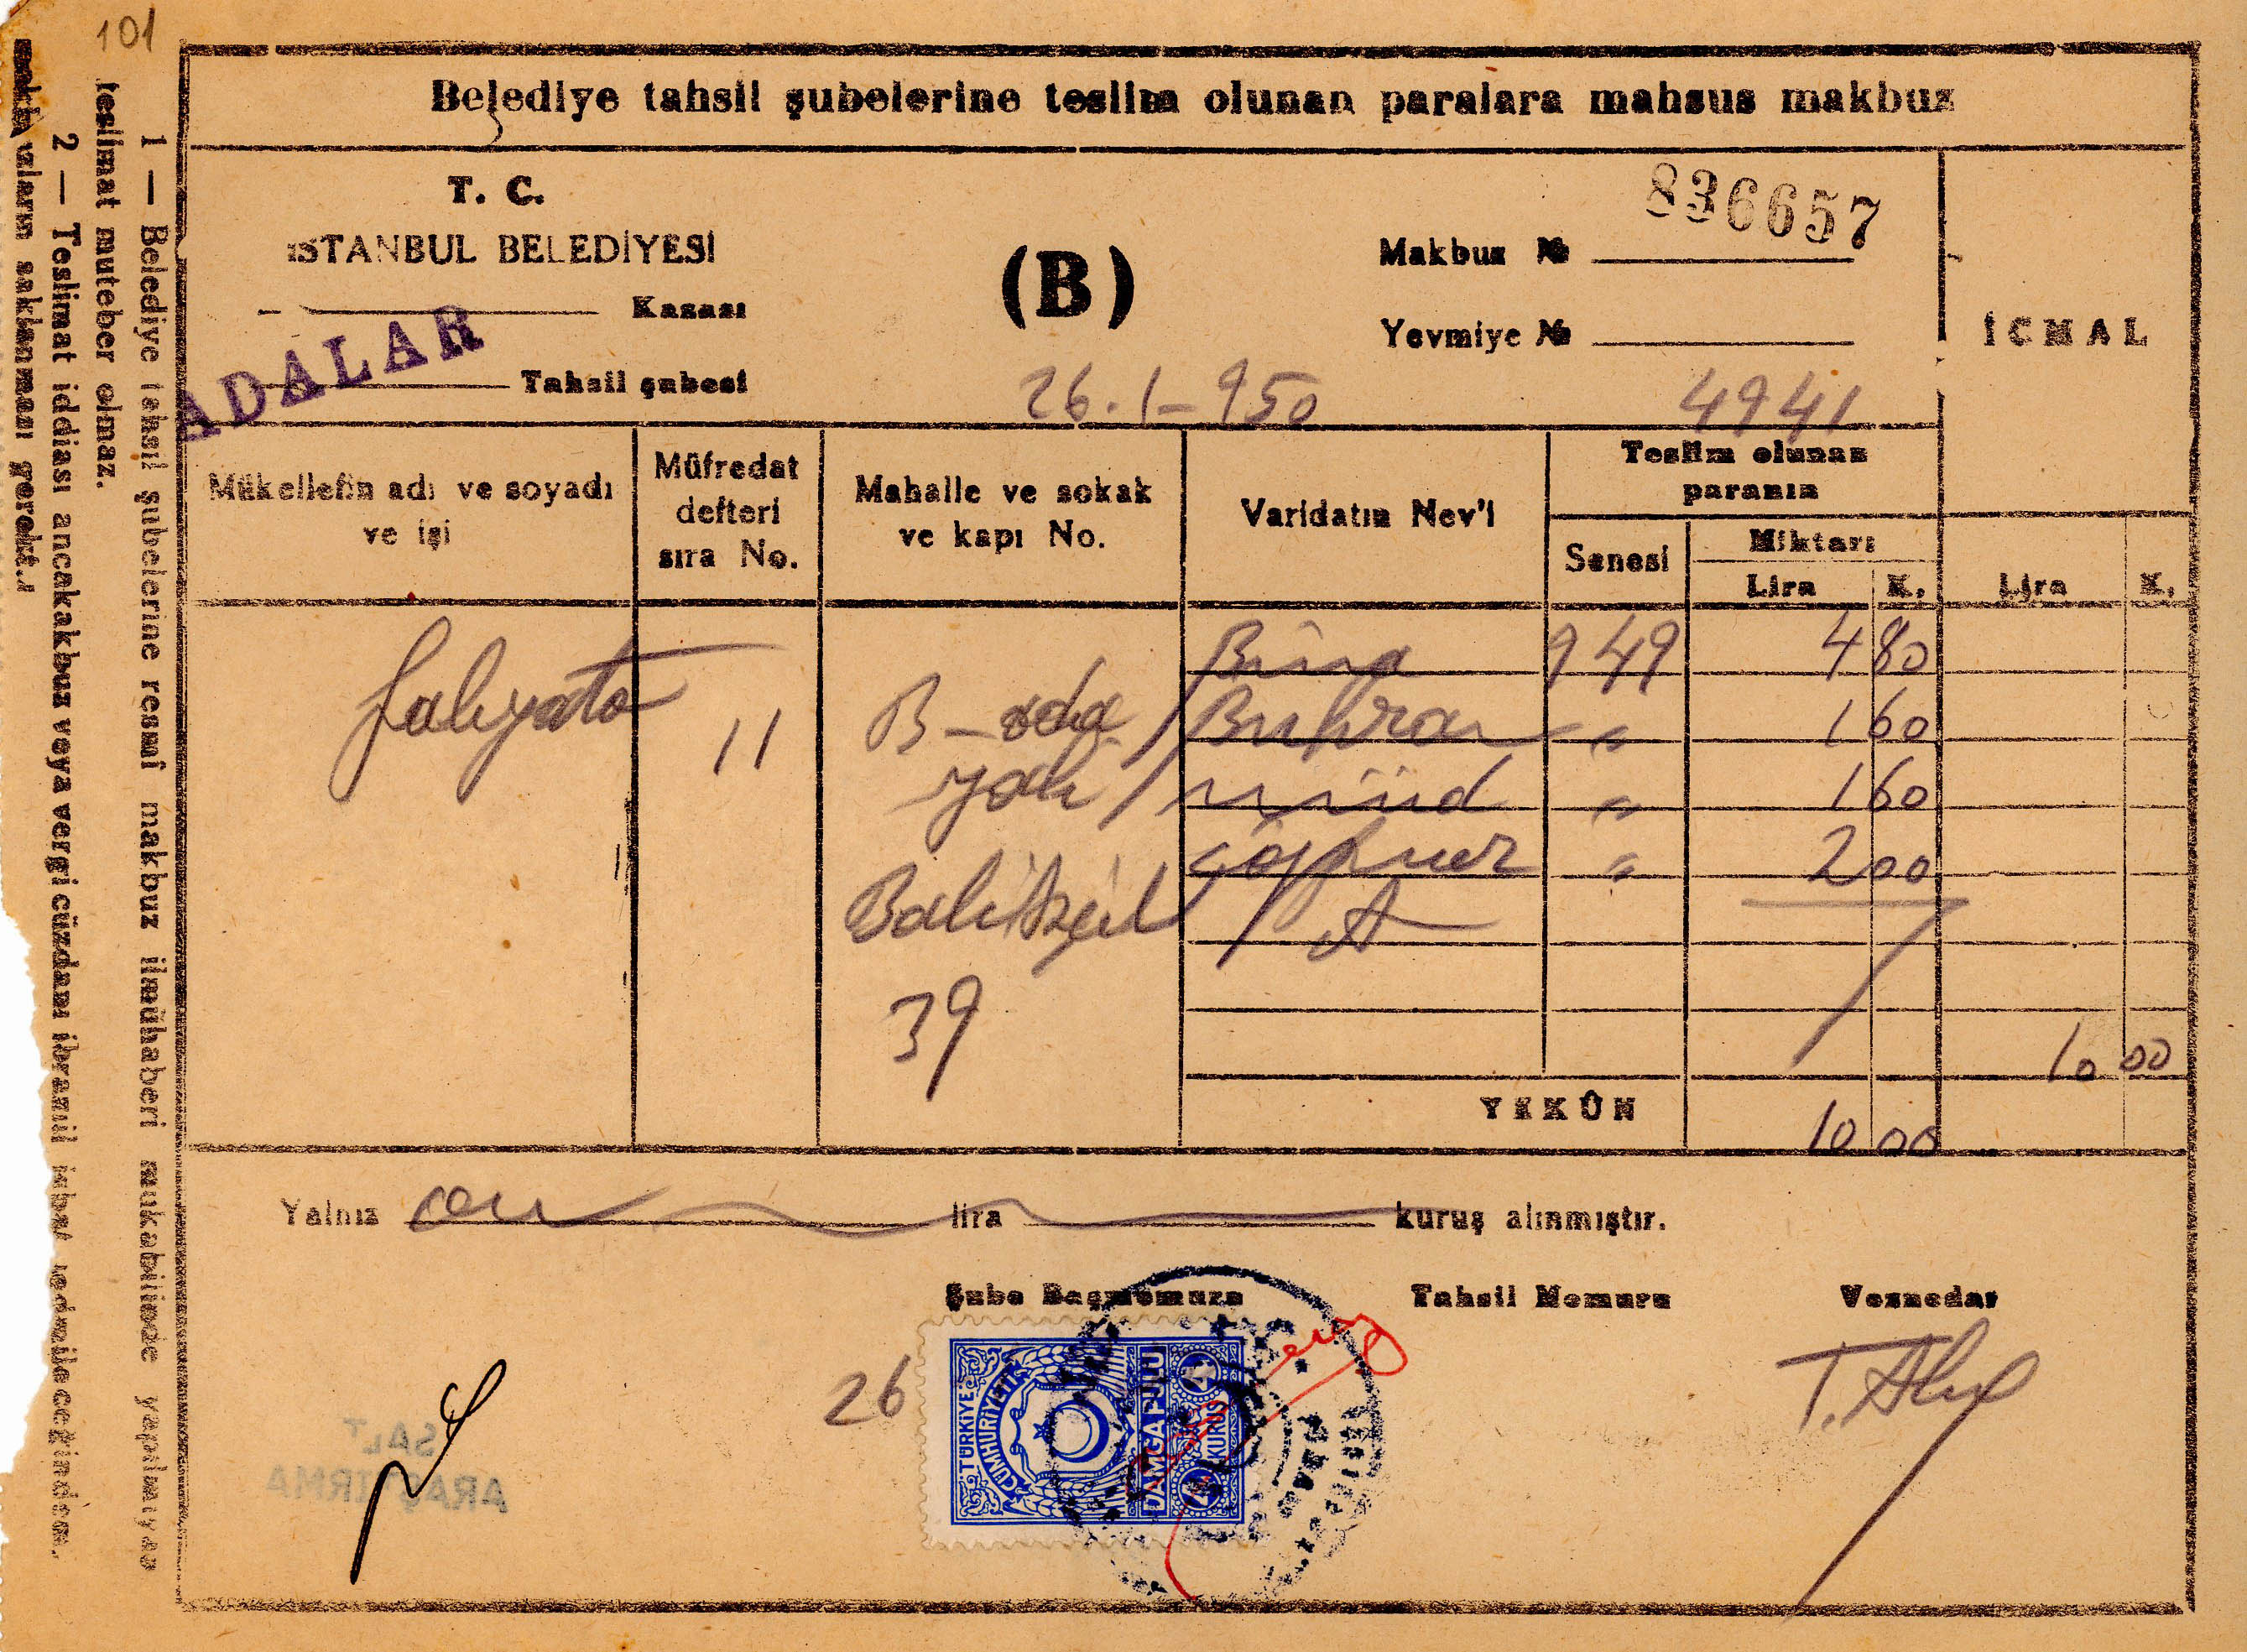 101
Belediye tahsil şubelerine teslim olunan paralara mahsus makbuz
T. C.
İSTANBUL BELEDİYESİ
Kazası
ADALAR
Tahsil şubesi
(B)
26.1-950
836657
Makbuz №
Yevmiye №
4941
İCMAL
Mükellefin adı ve soyadı
ve işi
Müfredat
defteri
sıra No.
Mahalle ve sokak
ve kapı No.
Varidatın Nev'i
Teslim olunan
paranın
Senesi
Miktarı
Lira K.
Lira K.
11
B-ada
yalı
39
Bina 949 4 80
Buhran " 1 60
" 1 60
" 2 00
10 00
YEKÛN 10 00
Yalnız on lira kuruş alınmıştır.
Şube Başmemuru Tahsil Memuru Veznedar
26
TÜRKİYE
CUMHURİYETİ
DAMGA PULU
KURUŞ
SALT
ARAŞTIRMA
1 — Belediye tahsil şubelerine resmî makbuz ilmühaberi mukabilinde yapılmıyan
teslimat muteber olmaz.
2 — Teslimat iddiası ancakakbuz veya vergi cüzdanı ibrazile isbat edileceğinden
makbuzların saklanması gerekt